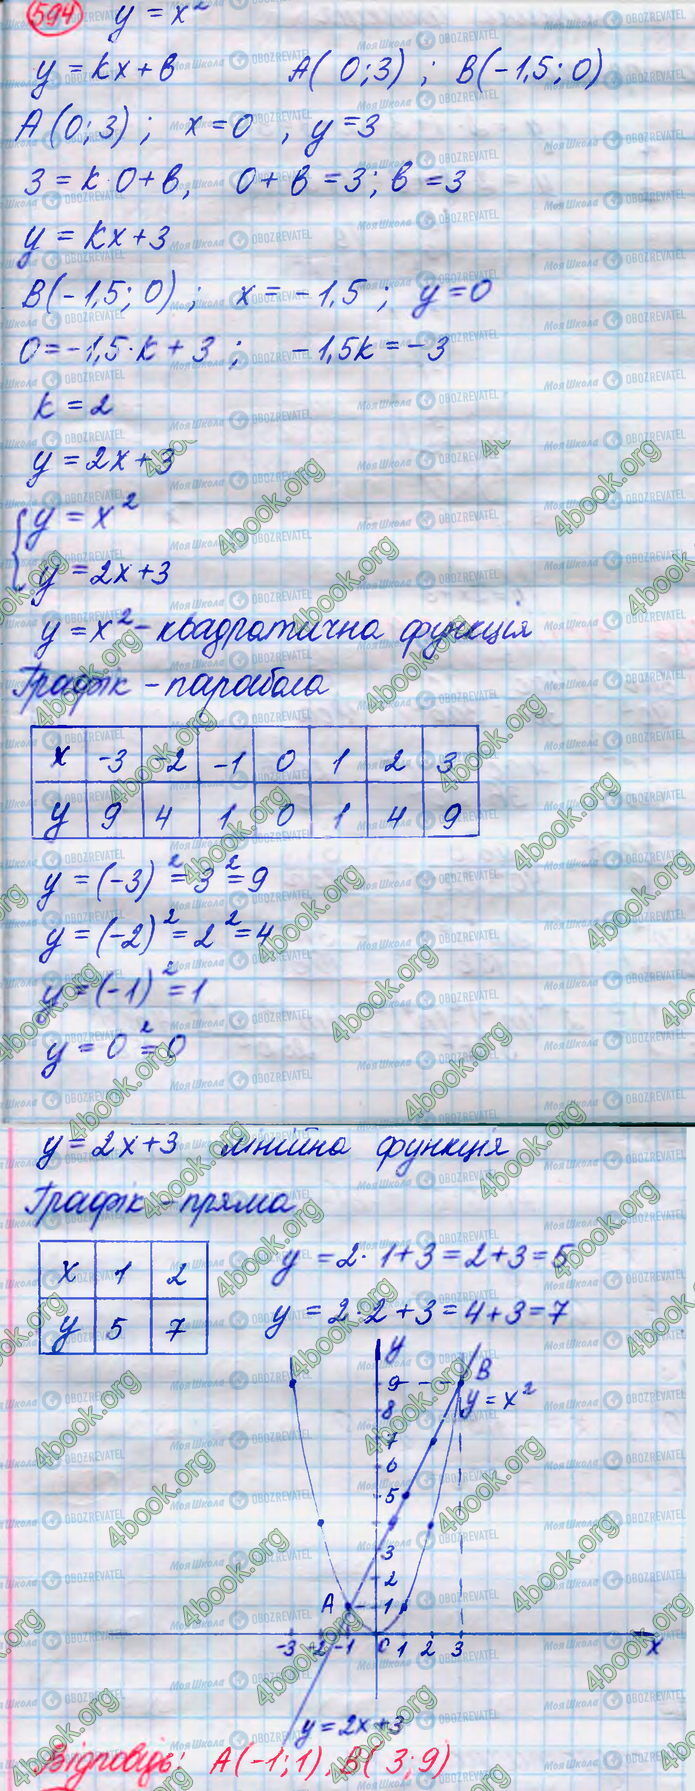 594 y = x²
y = kx + b A(0; 3) ; B(-1,5; 0)
A(0; 3) ; x = 0 , y = 3
3 = k·0 + b, 0 + b = 3; b = 3
y = kx + 3
B(-1,5; 0) ; x = -1,5 ; y = 0
0 = -1,5·k + 3 ; -1,5k = -3
k = 2
y = 2x + 3
{ y = x²
y = 2x + 3
y = x² - квадратична функція
Графік - парабола
x -3 -2 -1 0 1 2 3
y 9 4 1 0 1 4 9
y = (-3)² = 3² = 9
y = (-2)² = 2² = 4
y = (-1)² = 1
y = 0² = 0
y = 2x + 3 лінійна функція
Графік - пряма
x 1 2
y 5 7
y = 2·1 + 3 = 2 + 3 = 5
y = 2·2 + 3 = 4 + 3 = 7
y
9 B
8 y = x²
7
6
5
3
2
A 1
-3 -2 -1 0 1 2 3 x
y = 2x + 3
Відповідь: A(-1; 1), B(3; 9)
МояШкола OBOZREVATEL
4book.org